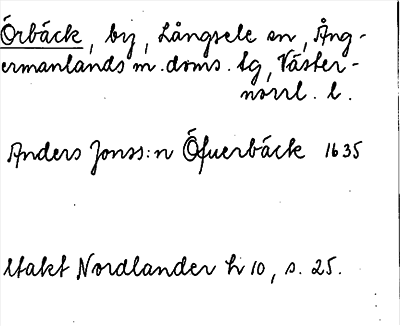 Örbäck, by, Långsele sn, Ång-
ermanlands m. doms. lg, Väster-
norrl. l.
Anders Jonss:n Öfuerbäck 1635
Utakt Nordlander h 10, s. 25.